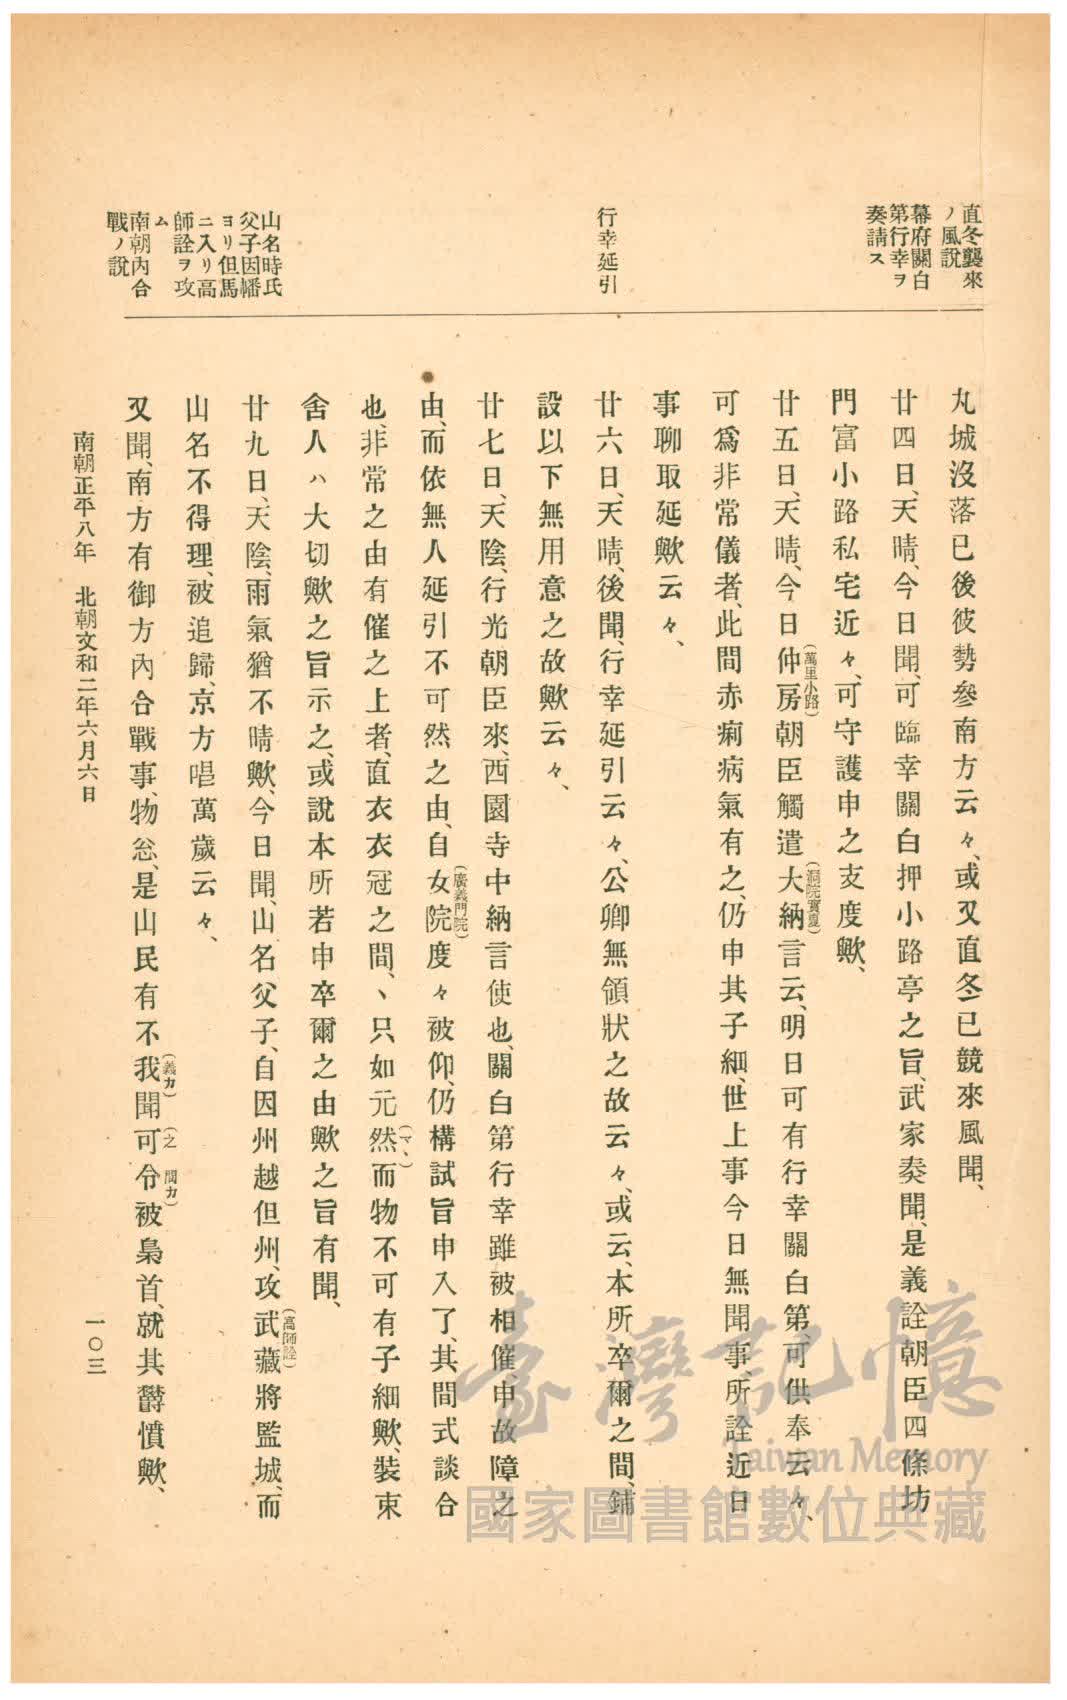 直冬襲來
ノ風說
幕府關白
第行幸ヲ
奏請ス
行幸延引
山名時氏
父子因幡
ヨリ但馬
ニ入リ高
師詮ヲ攻
ム
南朝內合
戰ノ說
丸城沒落已後彼勢參南方云々、或又直冬已競來風聞、
廿四日、天晴、今日聞、可臨幸關白押小路亭之旨、武家奏聞、是義詮朝臣四條坊
門富小路私宅近々、可守護申之支度歟、
廿五日、天晴、今日仲房(萬里小路)朝臣觸遣大納(洞院實夏)言云、明日可有行幸關白第、可供奉云々、
可爲非常儀者、此間赤痢病氣有之、仍申其子細、世上事今日無聞事、所詮近日
事聊取延歟云々、
廿六日、天晴、後聞、行幸延引云々、公卿無領狀之故云々、或云、本所卒爾之間、鋪
設以下無用意之故歟云々、
廿七日、天陰、行光朝臣來、西園寺中納言使也、關白第行幸雖被相催申故障之
由、而依無人延引不可然之由、自女院(廣義門院)度々被仰、仍構試旨申入了、其間式談合
也、非常之由有催之上者、直衣衣冠之間、丶只如元然(マヽ)而物不可有子細歟、裝束
舍人ハ大切歟之旨示之、或說本所若申卒爾之由歟之旨有聞、
廿九日、天陰、雨氣猶不晴歟、今日聞、山名父子、自因州越但州、攻武藏(高師詮)將監城、而
山名不得理、被追歸、京方唱萬歲云々、
又聞、南方有御方內合戰事、物忩、是山民有不我(義カ)聞可(之)令(間カ)被梟首、就其欝憤歟、
南朝正平八年　北朝文和二年六月六日
一〇三
臺灣記憶
Taiwan Memory
國家圖書館數位典藏